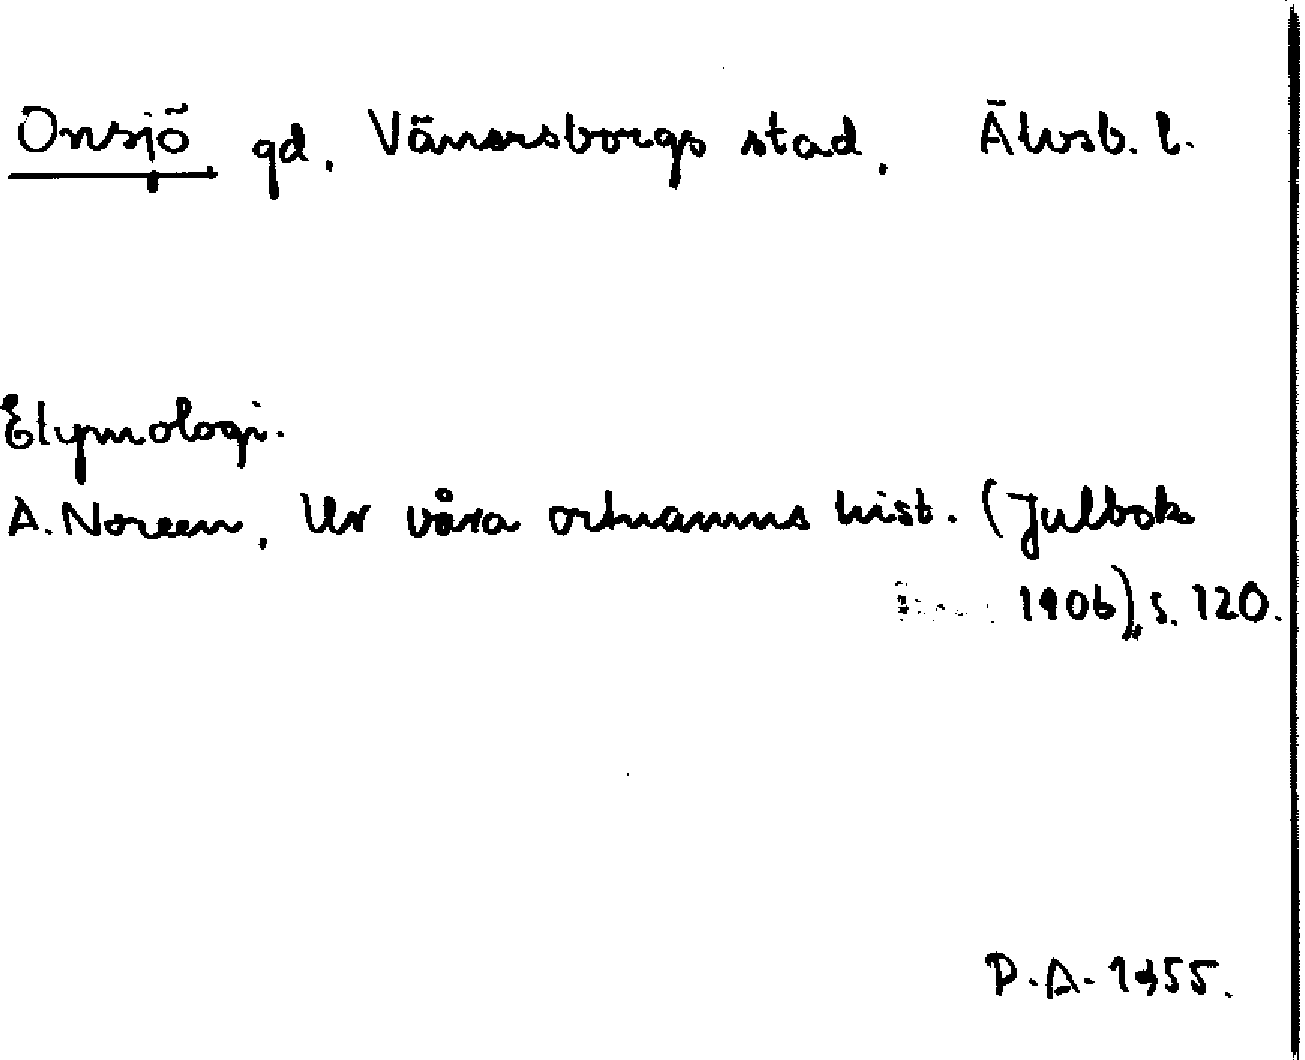 Onsjö gd. Vänersborgs stad. Älvsb. l.
Etymologi.
A. Noreen, Ur våra ortnamns hist. (Julbok
1906), s. 120.
P.A. 1955.